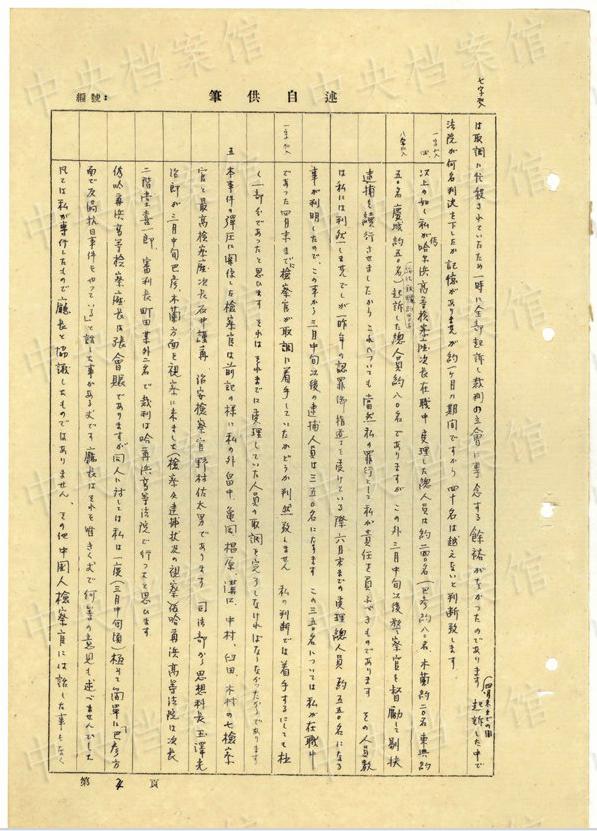 述自供筆
編號:
七字加入
は取調に忙殺されていたため一時に全部起訴し裁判の立會に専念する餘裕がなかつたのであります 起訴した中で
(四月末までの間
法院が何名判決を下したか記憶がありませんが約一ヶ月の期間ですから四十名は越えないと判断致します。
四 以上の如く私が哈尔浜高等検察院次長在職中 受理した総人員は約二四〇名(巴彦約八〇名、木蘭約二〇名 東興約
五〇名 慶城約五〇名)起訴した総人員約八〇名でありますが この外三月中旬以後警察官を督励して剔抉
逮捕を續行させましたから これについても當然私の罪行として私が責任を負ふべきものであります その人員数
は私には判然しませんでしたが一昨年の認罪御指導を受けている際六月末までの受理總人員 約五五〇名になる
事が判明したので、この事から三月中旬以後の逮捕人員は三五〇名になります この三五〇名については私が在職中
であつた四月末までに検察官が取調に着手していたかどうか判然致しません 私の判断では着手するにしても極
く一部分であつたと思ひます それは それまでに受理していた人員の取調を完了しなければならなかつたからであります
五 本事件の彈圧に関係した検察官は前記の様に私の外留中、亀岡 椙原、溝口、中村、臼田 木村の七検察
官と最高検察廳次長石井謹壽 治安検察官野村佐太男であります 司法部から思想科長玉澤光
治郎が三月中旬巴彦、木蘭方面を視察に来ました(検挙及逮捕状況の視察)哈尔賓浜高等法院は次長
二階堂喜一郎、審判長町田某外二名で裁判は哈尔浜高等法院で行つたと思ひます
哈尔浜高等検察廳長は張會賬でありますが同人に対しては私は一度(三月中旬頃)極めて簡單に「巴彦方
面で反満抗日事件をやつている」と話した事がある丈です 廳長はそれを聴きく丈で何等の意見も述べませんでした
凡ては私が専行したもので廳長と協議したものではありません、その他中國人検察官には話した事もなく
第 頁